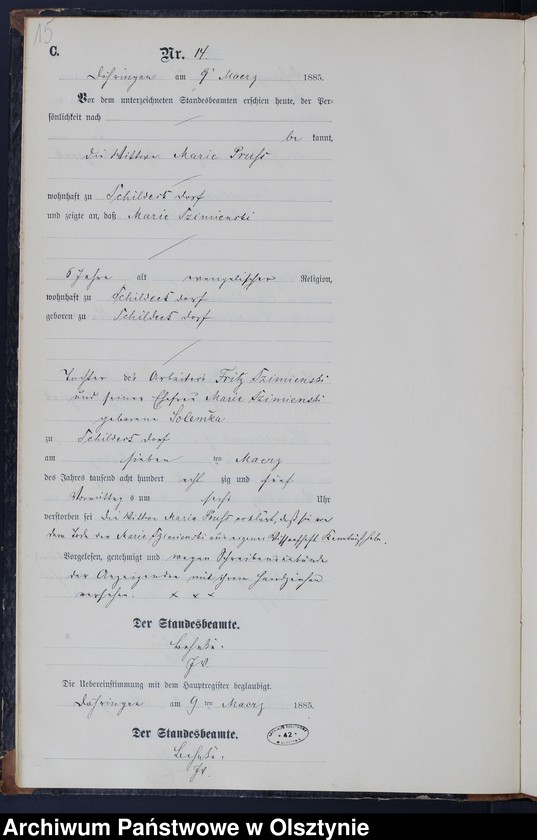 15
C.
Nr. 14.
Döhringen am 9t Maerz 1885.
Vor dem unterzeichneten Standesbeamten erschien heute, der Per-
sönlichkeit nach
be kannt,
die Wittwe Marie Pruss
wohnhaft zu Schilders dorf
und zeigte an, daß Marie Szimienski
6 Jahre alt evangelischer Religion,
wohnhaft zu Schilders dorf
geboren zu Schilders dorf
Tochter des Arbeiters Fritz Szimienski
und seiner Ehefrau Marie Szimienski
geborene
zu Schilders dorf
am sieben ten Maerz
des Jahres tausend acht hundert acht zig und fünf
Vormittags um sechs Uhr
verstorben sei die Wittwe Marie Pruss erklärt, daß sie von
dem Tode der Marie Szimienski aus eigener Wissenschaft Kenntniß habe.
Vorgelesen, genehmigt und wegen Schreibensunkunde
der Anzeigenden mit ihrem Handzeichen
versehen. x x x
Der Standesbeamte.
J.V.
Die Uebereinstimmung mit dem Hauptregister beglaubigt.
Döhringen am 9 ten Maerz 1885.
Der Standesbeamte.
42
J.V.
Archiwum Państwowe w Olsztynie